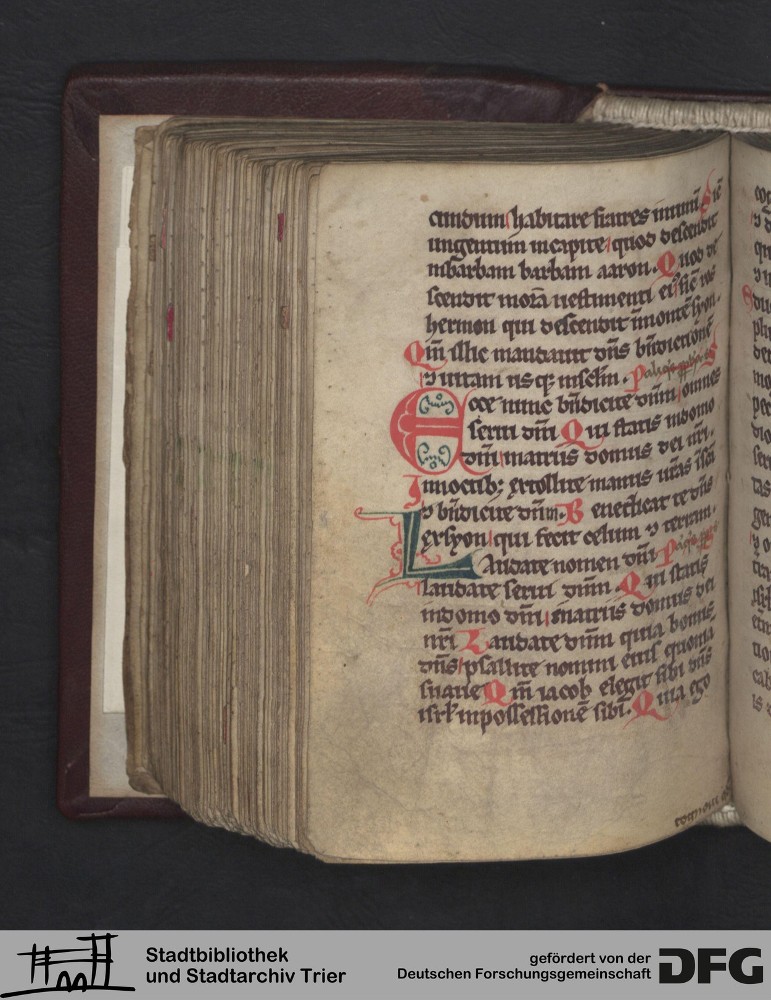 cundum habitare fratres in unū Siċ
ungentum in capite quod descendit
in barbam barbam aaron. Quod de
scendit in orā vestimenti ei⁹ siċ ros
hermon qui descendit ī montē syon.
Qm̄ illic mandavit dn̄s bn̄dictionē
⁊ vitam usq; in sc̄lm.
Ecce nunc bn̄dicite dn̄m omnes
servi dn̄i Qui statis in domo
dn̄i in atriis domus dei nr̄i.
In noctib; extollite manus vr̄as ī sc̄a
⁊ bn̄dicite dn̄m. Benedicat te dn̄s
ex syon qui fecit celum ⁊ terram.
Laudate nomen dn̄i
laudate servi dn̄m. Qui statis
in domo dn̄i in atriis domus dei
nr̄i Laudate dn̄m quia bonus
dn̄s psallite nomini eius quoniā
suave Qm̄ iacob elegit sibi dn̄s
isrl' in possessionē sibi. Quia ego
Stadtbibliothek
und Stadtarchiv Trier
gefördert von der
Deutschen Forschungsgemeinschaft
DFG